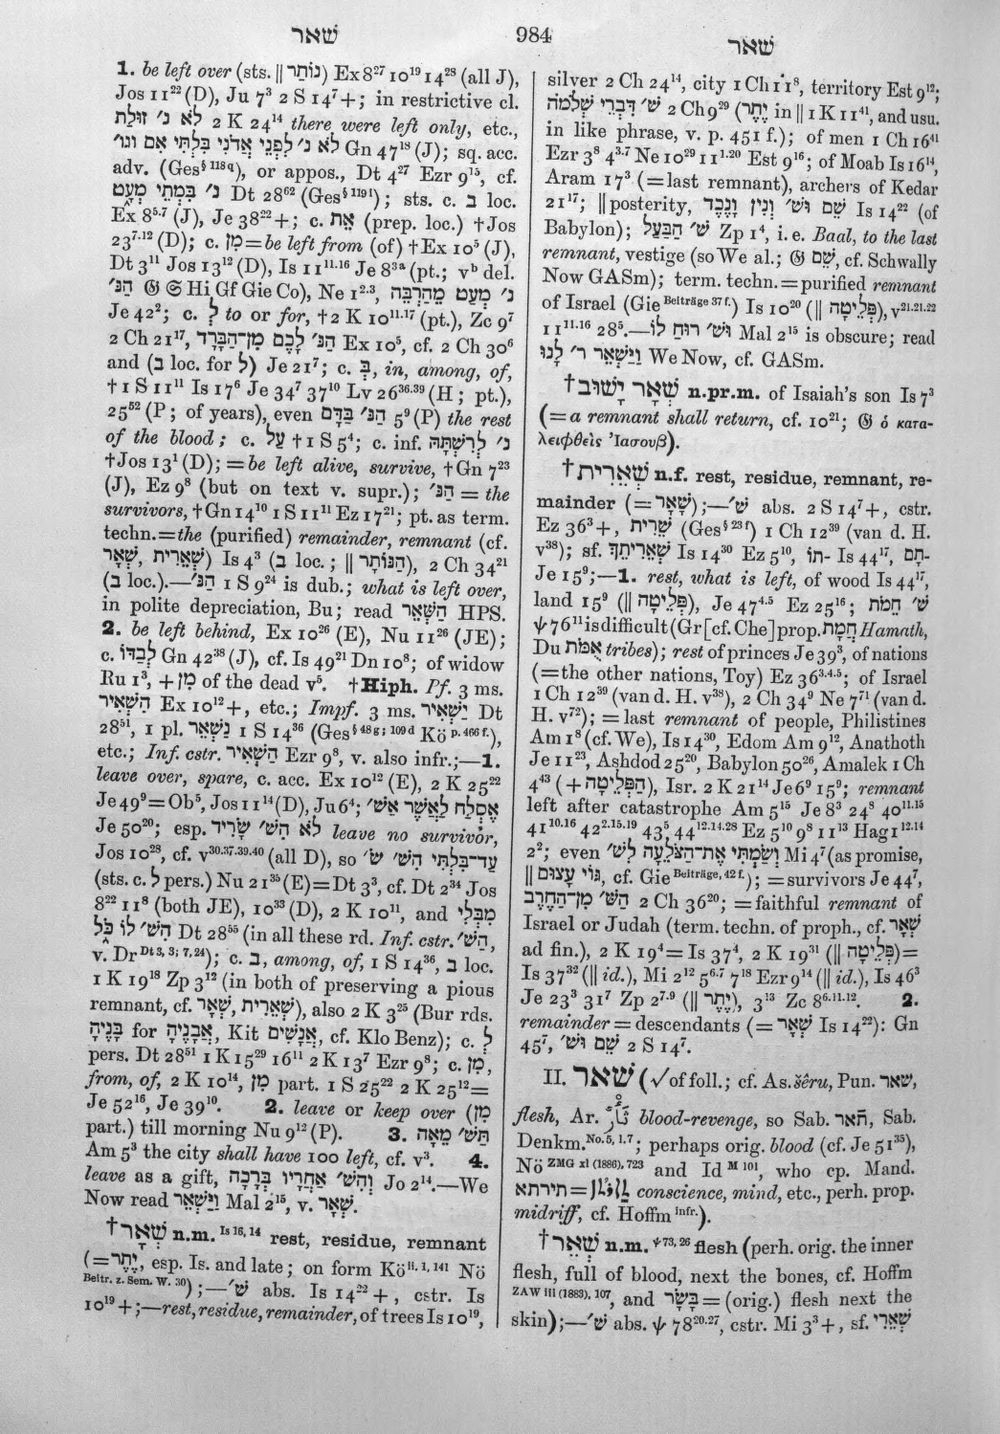 שׁאר
984
שׁאר
1. be left over (sts. ‖ נוֹתַר) Ex 8²⁷ 10¹⁹ 14²⁸ (all J),
Jos 11²² (D), Ju 7³ 2 S 14⁷ +; in restrictive cl.
לֹא נ׳ זוּלַת 2 K 24¹⁴ there were left only, etc.,
לֹא נ׳ לִפְנֵי אֲדֹנִי בִּלְתִּי אִם וגו׳ Gn 47¹⁸ (J); sq. acc.
adv. (Ges§ 118 q), or appos., Dt 4²⁷ Ezr 9¹⁵, cf.
נ׳ בִּמְתֵי מְעָט Dt 28⁶² (Ges§ 119 i); sts. c. ב loc.
Ex 8⁵·⁷ (J), Je 38²² +; c. אֵת (prep. loc.) †Jos
23⁷·¹² (D); c. מִן = be left from (of) †Ex 10⁵ (J),
Dt 3¹¹ Jos 13¹² (D), Is 11¹¹·¹⁶ Je 8³ᵃ (pt.; vᵇ del.
הַנּ׳ 𝔊 𝔖 Hi Gf Gie Co), Ne 1²·³, נ׳ מְעַט מֵהַרְבֵּה
Je 42²; c. לְ to or for, †2 K 10¹¹·¹⁷ (pt.), Zc 9⁷
2 Ch 21¹⁷, הַנּ׳ לָכֶם מִן־הַבָּרָד Ex 10⁵, cf. 2 Ch 30⁶
and (ב loc. for לְ) Je 21⁷; c. בְּ, in, among, of,
†1 S 11¹¹ Is 17⁶ Je 34⁷ 37¹⁰ Lv 26³⁶·³⁹ (H; pt.),
25⁵² (P; of years), even הַנּ׳ בַּדָּם 5⁹ (P) the rest
of the blood; c. עַל †1 S 5⁴; c. inf. נ׳ לְרִשְׁתָּהּ
†Jos 13¹ (D); = be left alive, survive, †Gn 7²³
(J), Ez 9⁸ (but on text v. supr.); הַנּ׳ = the
survivors, †Gn 14¹⁰ 1 S 11¹¹ Ez 17²¹; pt. as term.
techn. = the (purified) remainder, remnant (cf.
שְׁאֵרִית, שְׁאָר) Is 4³ (ב loc.; ‖ הַנּוֹתָר), 2 Ch 34²¹
(ב loc.).—הַנּ׳ 1 S 9²⁴ is dub.; what is left over,
in polite depreciation, Bu; read הַשְּׁאֵר HPS.
2. be left behind, Ex 10²⁶ (E), Nu 11²⁶ (JE);
c. לְבַדּוֹ Gn 42³⁸ (J), cf. Is 49²¹ Dn 10⁸; of widow
Ru 1³, + מִן of the dead v⁵. †Hiph. Pf. 3 ms.
הִשְׁאִיר Ex 10¹² +, etc.; Impf. 3 ms. יַשְׁאִיר Dt
28⁵¹, 1 pl. נַשְׁאֵר 1 S 14³⁶ (Ges§ 48 g; 109 d Kö p. 466 f.),
etc.; Inf. cstr. הַשְׁאִיר Ezr 9⁸, v. also infr.;—1.
leave over, spare, c. acc. Ex 10¹² (E), 2 K 25²²
Je 49⁹ = Ob⁵, Jos 11¹⁴ (D), Ju 6⁴; אֶסְלַח לַאֲשֶׁר אַשׁ׳
Je 50²⁰; esp. לֹא הִשׁ׳ שָׂרִיד leave no survivor,
Jos 10²⁸, cf. v³⁰·³⁷·³⁹·⁴⁰ (all D), so עַד־בִּלְתִּי הִשׁ׳ שׂ׳
(sts. c. לְ pers.) Nu 21³⁵ (E) = Dt 3³, cf. Dt 2³⁴ Jos
8²² 11⁸ (both JE), 10³³ (D), 2 K 10¹¹, and מִבְּלִי
הִשׁ׳ לוֹ כֹּל Dt 28⁵⁵ (in all these rd. Inf. cstr. הַשׁ׳,
v. Dr Dt 3, 3; 7, 24); c. ב, among, of, 1 S 14³⁶, ב loc.
1 K 19¹⁸ Zp 3¹² (in both of preserving a pious
remnant, cf. שְׁאֵרִית, שְׁאָר), also 2 K 3²⁵ (Bur rds.
בָּנֶיהָ for אֲבָנֶיהָ, Kit אֲנָשִׁים, cf. Klo Benz); c. לְ
pers. Dt 28⁵¹ 1 K 15²⁹ 16¹¹ 2 K 13⁷ Ezr 9⁸; c. מִן,
from, of, 2 K 10¹⁴, מִן part. 1 S 25²² 2 K 25¹² =
Je 52¹⁶, Je 39¹⁰. 2. leave or keep over (מִן
part.) till morning Nu 9¹² (P). 3. תַּשׁ׳ מֵאָה
Am 5³ the city shall have 100 left, cf. v³. 4.
leave as a gift, וְהִשׁ׳ אַחֲרָיו בְּרָכָה Jo 2¹⁴.—We
Now read וַיַּשְׁאֵר Mal 2¹⁵, v. שְׁאָר.
†שְׁאָר n.m. Is 16, 14 rest, residue, remnant
(= יֶתֶר, esp. Is. and late; on form Kö ii. 1, 141 Nö
Beitr. z. Sem. W. 30);—שׁ׳ abs. Is 14²² +, cstr. Is
10¹⁹ +;—rest, residue, remainder, of trees Is 10¹⁹,
silver 2 Ch 24¹⁴, city 1 Ch 11⁸, territory Est 9¹²;
שׁ׳ דִּבְרֵי שְׁלֹמֹה 2 Ch 9²⁹ (יֶתֶר in ‖ 1 K 11⁴¹, and usu.
in like phrase, v. p. 451 f.); of men 1 Ch 16⁴¹
Ezr 3⁸ 4³·⁷ Ne 10²⁹ 11¹·²⁰ Est 9¹⁶; of Moab Is 16¹⁴,
Aram 17³ (= last remnant), archers of Kedar
21¹⁷; ‖ posterity, שֵׁם וּשׁ׳ וְנִין וָנֶכֶד Is 14²² (of
Babylon); שׁ׳ הַבַּעַל Zp 1⁴, i.e. Baal, to the last
remnant, vestige (so We al.; 𝔊 שֵׁם, cf. Schwally
Now GASm); term. techn. = purified remnant
of Israel (Gie Beiträge 37 f.) Is 10²⁰ (‖ פְּלֵיטָה), v²¹·²¹·²²
11¹¹·¹⁶ 28⁵.—וּשׁ׳ רוּחַ לוֹ Mal 2¹⁵ is obscure; read
וַיַּשְׁאֵר ר׳ לָנוּ We Now, cf. GASm.
†שְׁאָר יָשׁוּב n.pr.m. of Isaiah's son Is 7³
(= a remnant shall return, cf. 10²¹; 𝔊 ὁ κατα-
λειφθεὶς Ἰασουβ).
†שְׁאֵרִית n.f. rest, residue, remnant, re-
mainder (= שְׁאָר);—שׁ׳ abs. 2 S 14⁷ +, cstr.
Ez 36³ +, שֵׁרִית (Ges§ 23 f) 1 Ch 12³⁹ (van d. H.
v³⁸); sf. שְׁאֵרִיתֵךְ Is 14³⁰ Ez 5¹⁰, תוֹ- Is 44¹⁷, תָם-
Je 15⁹;—1. rest, what is left, of wood Is 44¹⁷,
land 15⁹ (‖ פְּלֵיטָה), Je 47⁴·⁵ Ez 25¹⁶; שׁ׳ חֵמֹת
ψ 76¹¹ is difficult (Gr [cf. Che] prop. חֲמָת Hamath,
Du אֻמּוֹת tribes); rest of princes Je 39³, of nations
(= the other nations, Toy) Ez 36³·⁴·⁵; of Israel
1 Ch 12³⁹ (van d. H. v³⁸), 2 Ch 34⁹ Ne 7⁷¹ (van d.
H. v⁷²); = last remnant of people, Philistines
Am 1⁸ (cf. We), Is 14³⁰, Edom Am 9¹², Anathoth
Je 11²³, Ashdod 25²⁰, Babylon 50²⁶, Amalek 1 Ch
4⁴³ (+ הַפְּלֵיטָה), Isr. 2 K 21¹⁴ Je 6⁹ 15⁹; remnant
left after catastrophe Am 5¹⁵ Je 8³ 24⁸ 40¹¹·¹⁵
41¹⁰·¹⁶ 42²·¹⁵·¹⁹ 43⁵ 44¹²·¹⁴·²⁸ Ez 5¹⁰ 9⁸ 11¹³ Hag 1¹²·¹⁴
2²; even וְשַׂמְתִּי אֶת־הַצֹּלֵעָה לִשׁ׳ Mi 4⁷ (as promise,
‖ גּוֹי עָצוּם, cf. Gie Beiträge, 42 f.); = survivors Je 44⁷,
הַשּׁ׳ מִן־הַחֶרֶב 2 Ch 36²⁰; = faithful remnant of
Israel or Judah (term. techn. of proph., cf. שְׁאָר
ad fin.), 2 K 19⁴ = Is 37⁴, 2 K 19³¹ (‖ פְּלֵיטָה) =
Is 37³² (‖ id.), Mi 2¹² 5⁶·⁷ 7¹⁸ Ezr 9¹⁴ (‖ id.), Is 46³
Je 23³ 31⁷ Zp 2⁷·⁹ (‖ יֶתֶר), 3¹³ Zc 8⁶·¹¹·¹². 2.
remainder = descendants (= שְׁאָר Is 14²²): Gn
45⁷, שֵׁם וּשׁ׳ 2 S 14⁷.
II. שׁאר (√ of foll.; cf. As. šêru, Pun. שאר,
flesh, Ar. ثَأْرٌ blood-revenge, so Sab. תאר, Sab.
Denkm. No. 5, 1. 7; perhaps orig. blood (cf. Je 51³⁵),
Nö ZMG xl (1886), 723 and Id M 101, who cp. Mand.
תירתא = conscience, mind, etc., perh. prop.
midriff, cf. Hoffm infr.).
†שְׁאֵר n.m. ψ 73, 26 flesh (perh. orig. the inner
flesh, full of blood, next the bones, cf. Hoffm
ZAW iii (1883), 107, and בָּשָׂר = (orig.) flesh next the
skin);—שׁ׳ abs. ψ 78²⁰·²⁷, cstr. Mi 3³ +, sf. שְׁאֵרִי